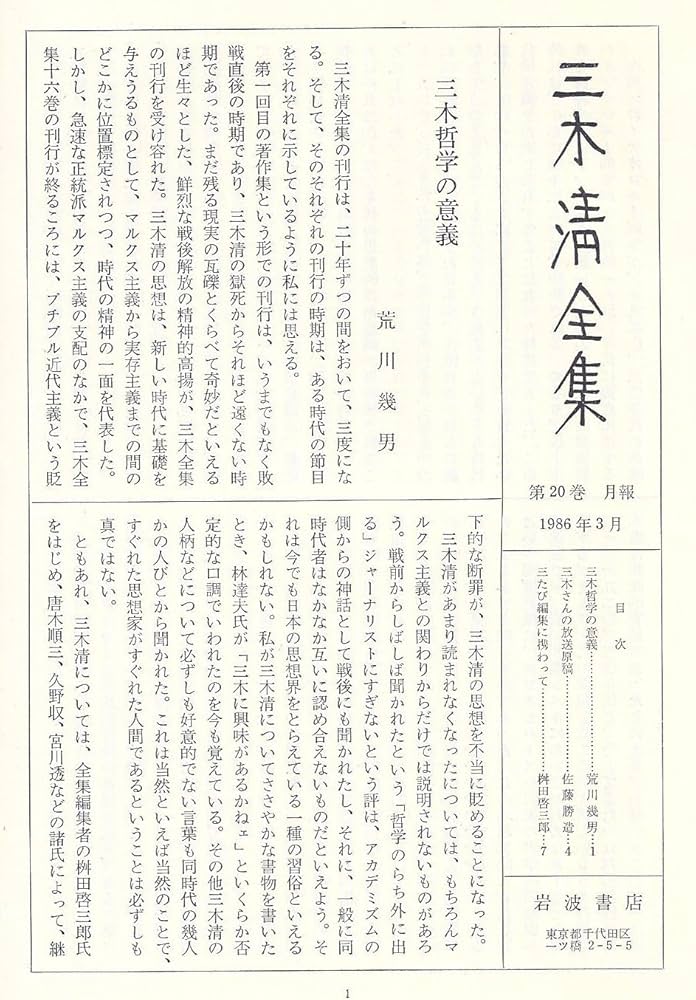 三木清全集
第20巻　月報
1986年3月
目　次
三木哲学の意義……………………荒川幾男…1
三木さんの放送原稿………………佐藤勝造…4
三たび編集に携わって……………桝田啓三郎…7
岩波書店
東京都千代田区
一ツ橋2-5-5
三木哲学の意義
荒川幾男
三木清全集の刊行は、二十年ずつの間をおいて、三度にな
る。そして、そのそれぞれの刊行の時期は、ある時代の節目
をそれぞれに示しているように私には思える。
第一回目の著作集という形での刊行は、いうまでもなく敗
戦直後の時期であり、三木清の獄死からそれほど遠くない時
期であった。まだ残る現実の瓦礫とくらべて奇妙だといえる
ほど生々とした、鮮烈な戦後解放の精神的高揚が、三木全集
の刊行を受け容れた。三木清の思想は、新しい時代に基礎を
与えうるものとして、マルクス主義から実存主義までの間の
どこかに位置標定されつつ、時代の精神の一面を代表した。
しかし、急速な正統派マルクス主義の支配のなかで、三木全
集十六巻の刊行が終るころには、プチブル近代主義という貶
下的な断罪が、三木清の思想を不当に貶めることになった。
三木清があまり読まれなくなったについては、もちろんマ
ルクス主義との関わりからだけでは説明されないものがあろ
う。戦前からしばしば聞かれたという「哲学のらち外に出
る」ジャーナリストにすぎないという評は、アカデミズムの
側からの神話として戦後にも聞かれたし、それに、一般に同
時代者はなかなか互いに認め合えないものだといえよう。そ
れは今でも日本の思想界をとらえている一種の習俗といえる
かもしれない。私が三木清についてささやかな書物を書いた
とき、林達夫氏が「三木に興味があるかねェ」といくらか否
定的な口調でいわれたのを今も覚えている。その他三木清の
人柄などについて必ずしも好意的でない言葉も同時代の幾人
かの人びとから聞かれた。これは当然といえば当然のことで、
すぐれた思想家がすぐれた人間であるということは必ずしも
真ではない。
ともあれ、三木清については、全集編集者の桝田啓三郎氏
をはじめ、唐木順三、久野収、宮川透などの諸氏によって、継
1